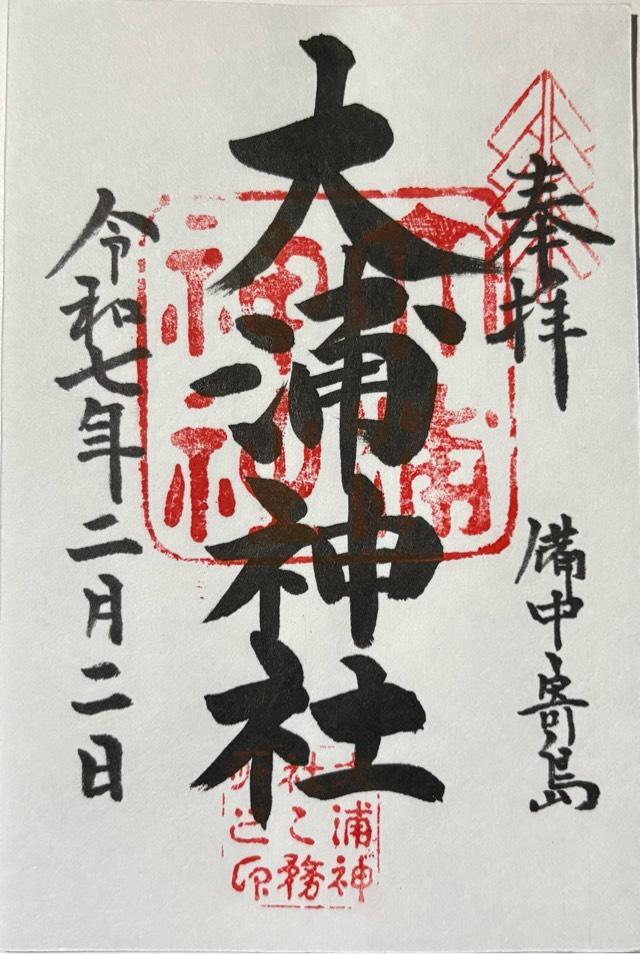 奉拝
備中寄島
大浦神社
令和七年二月二日
大浦
神社
大浦神
社之務
所之印